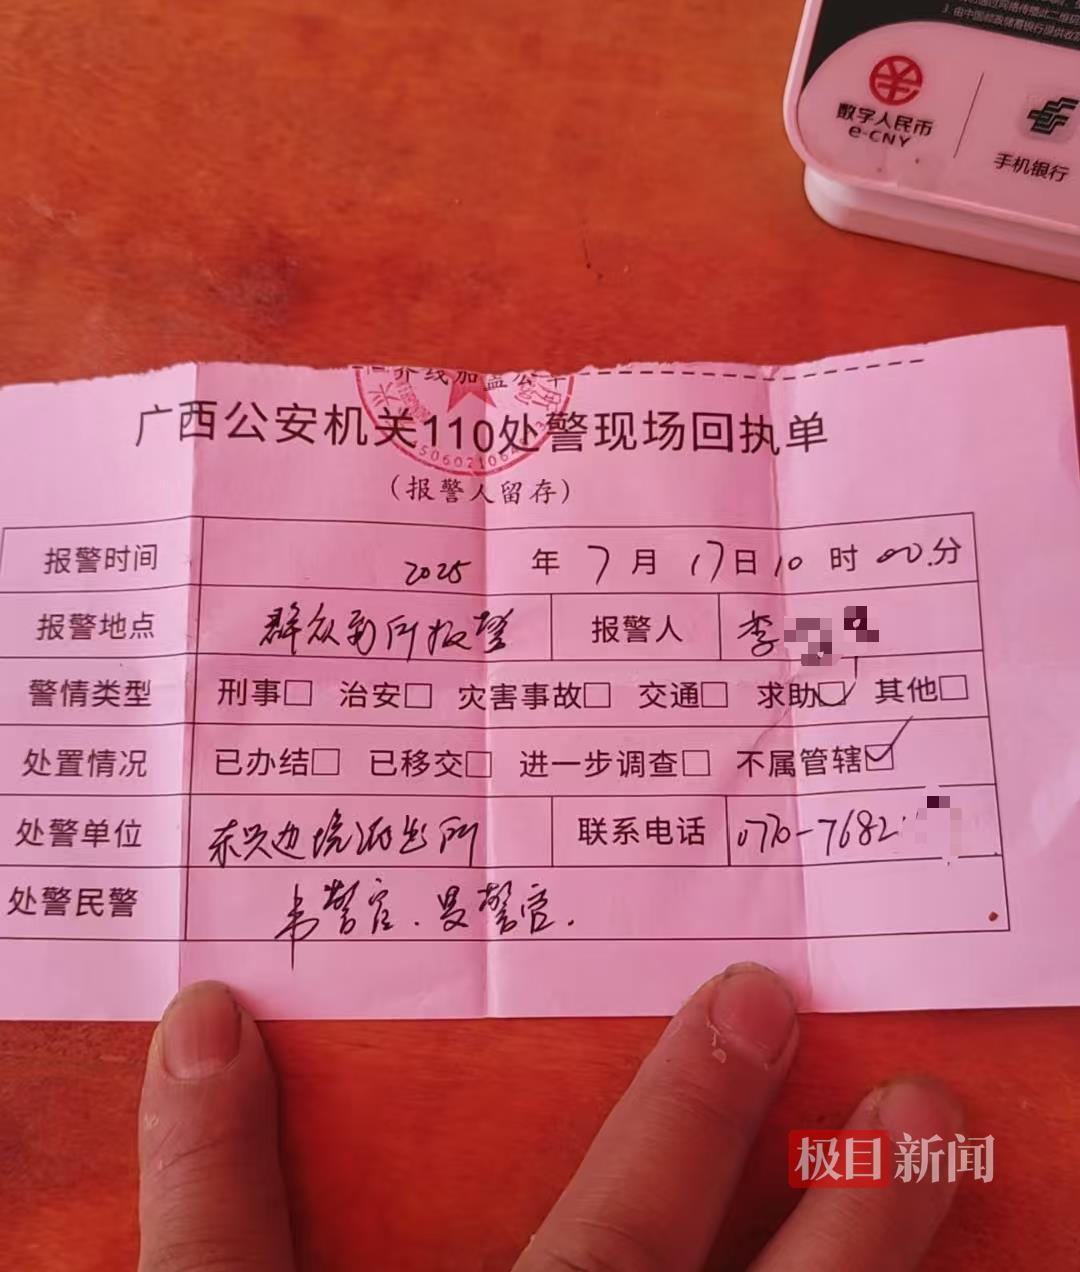 3.由中国邮政储蓄银行提供收款
数字人民币
e-CNY
手机银行
广西公安机关110处警现场回执单
(报警人留存)
报警时间 2025 年 7 月 17 日 10 时 00 分
报警地点 群众到所报警 报警人 李
警情类型 刑事□ 治安□ 灾害事故□ 交通□ 求助☑ 其他□
处置情况 已办结□ 已移交□ 进一步调查□ 不属管辖☑
处警单位 东兴边境派出所 联系电话 0770-7682
处警民警 韦警官.
极目新闻